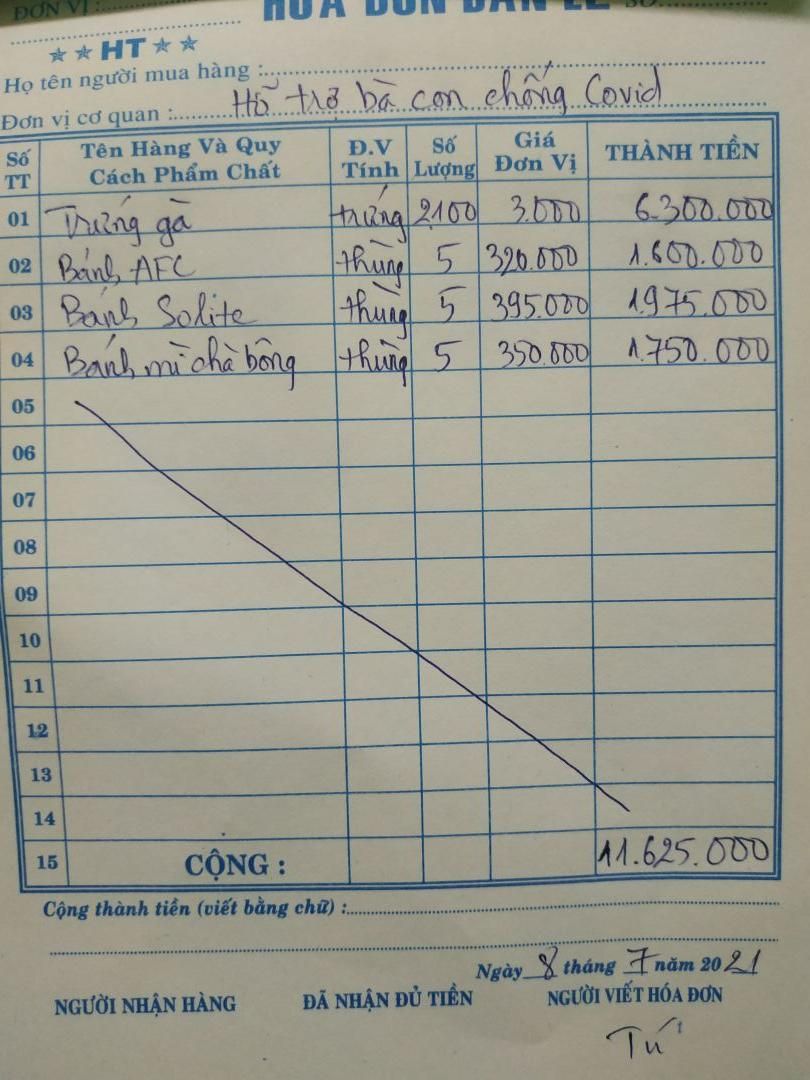 ĐƠN VỊ :
HÓA ĐƠN BÁN LẺ SỐ:
★ ★ HT ★ ★
Họ tên người mua hàng :
Đơn vị cơ quan : Hỗ trợ bà con chống Covid
Số TT Tên Hàng Và Quy Cách Phẩm Chất Đ.V Tính Số Lượng Giá Đơn Vị THÀNH TIỀN
01 Trứng gà trứng 2100 3.000 6.300.000
02 Bánh AFC thùng 5 320.000 1.600.000
03 Bánh Solite thùng 5 395.000 1.975.000
04 Bánh mì chà bông thùng 5 350.000 1.750.000
05
06
07
08
09
10
11
12
13
14
15 CỘNG : 11.625.000
Cộng thành tiền (viết bằng chữ) :
Ngày 8 tháng 7 năm 2021
NGƯỜI NHẬN HÀNG ĐÃ NHẬN ĐỦ TIỀN NGƯỜI VIẾT HÓA ĐƠN
Tú